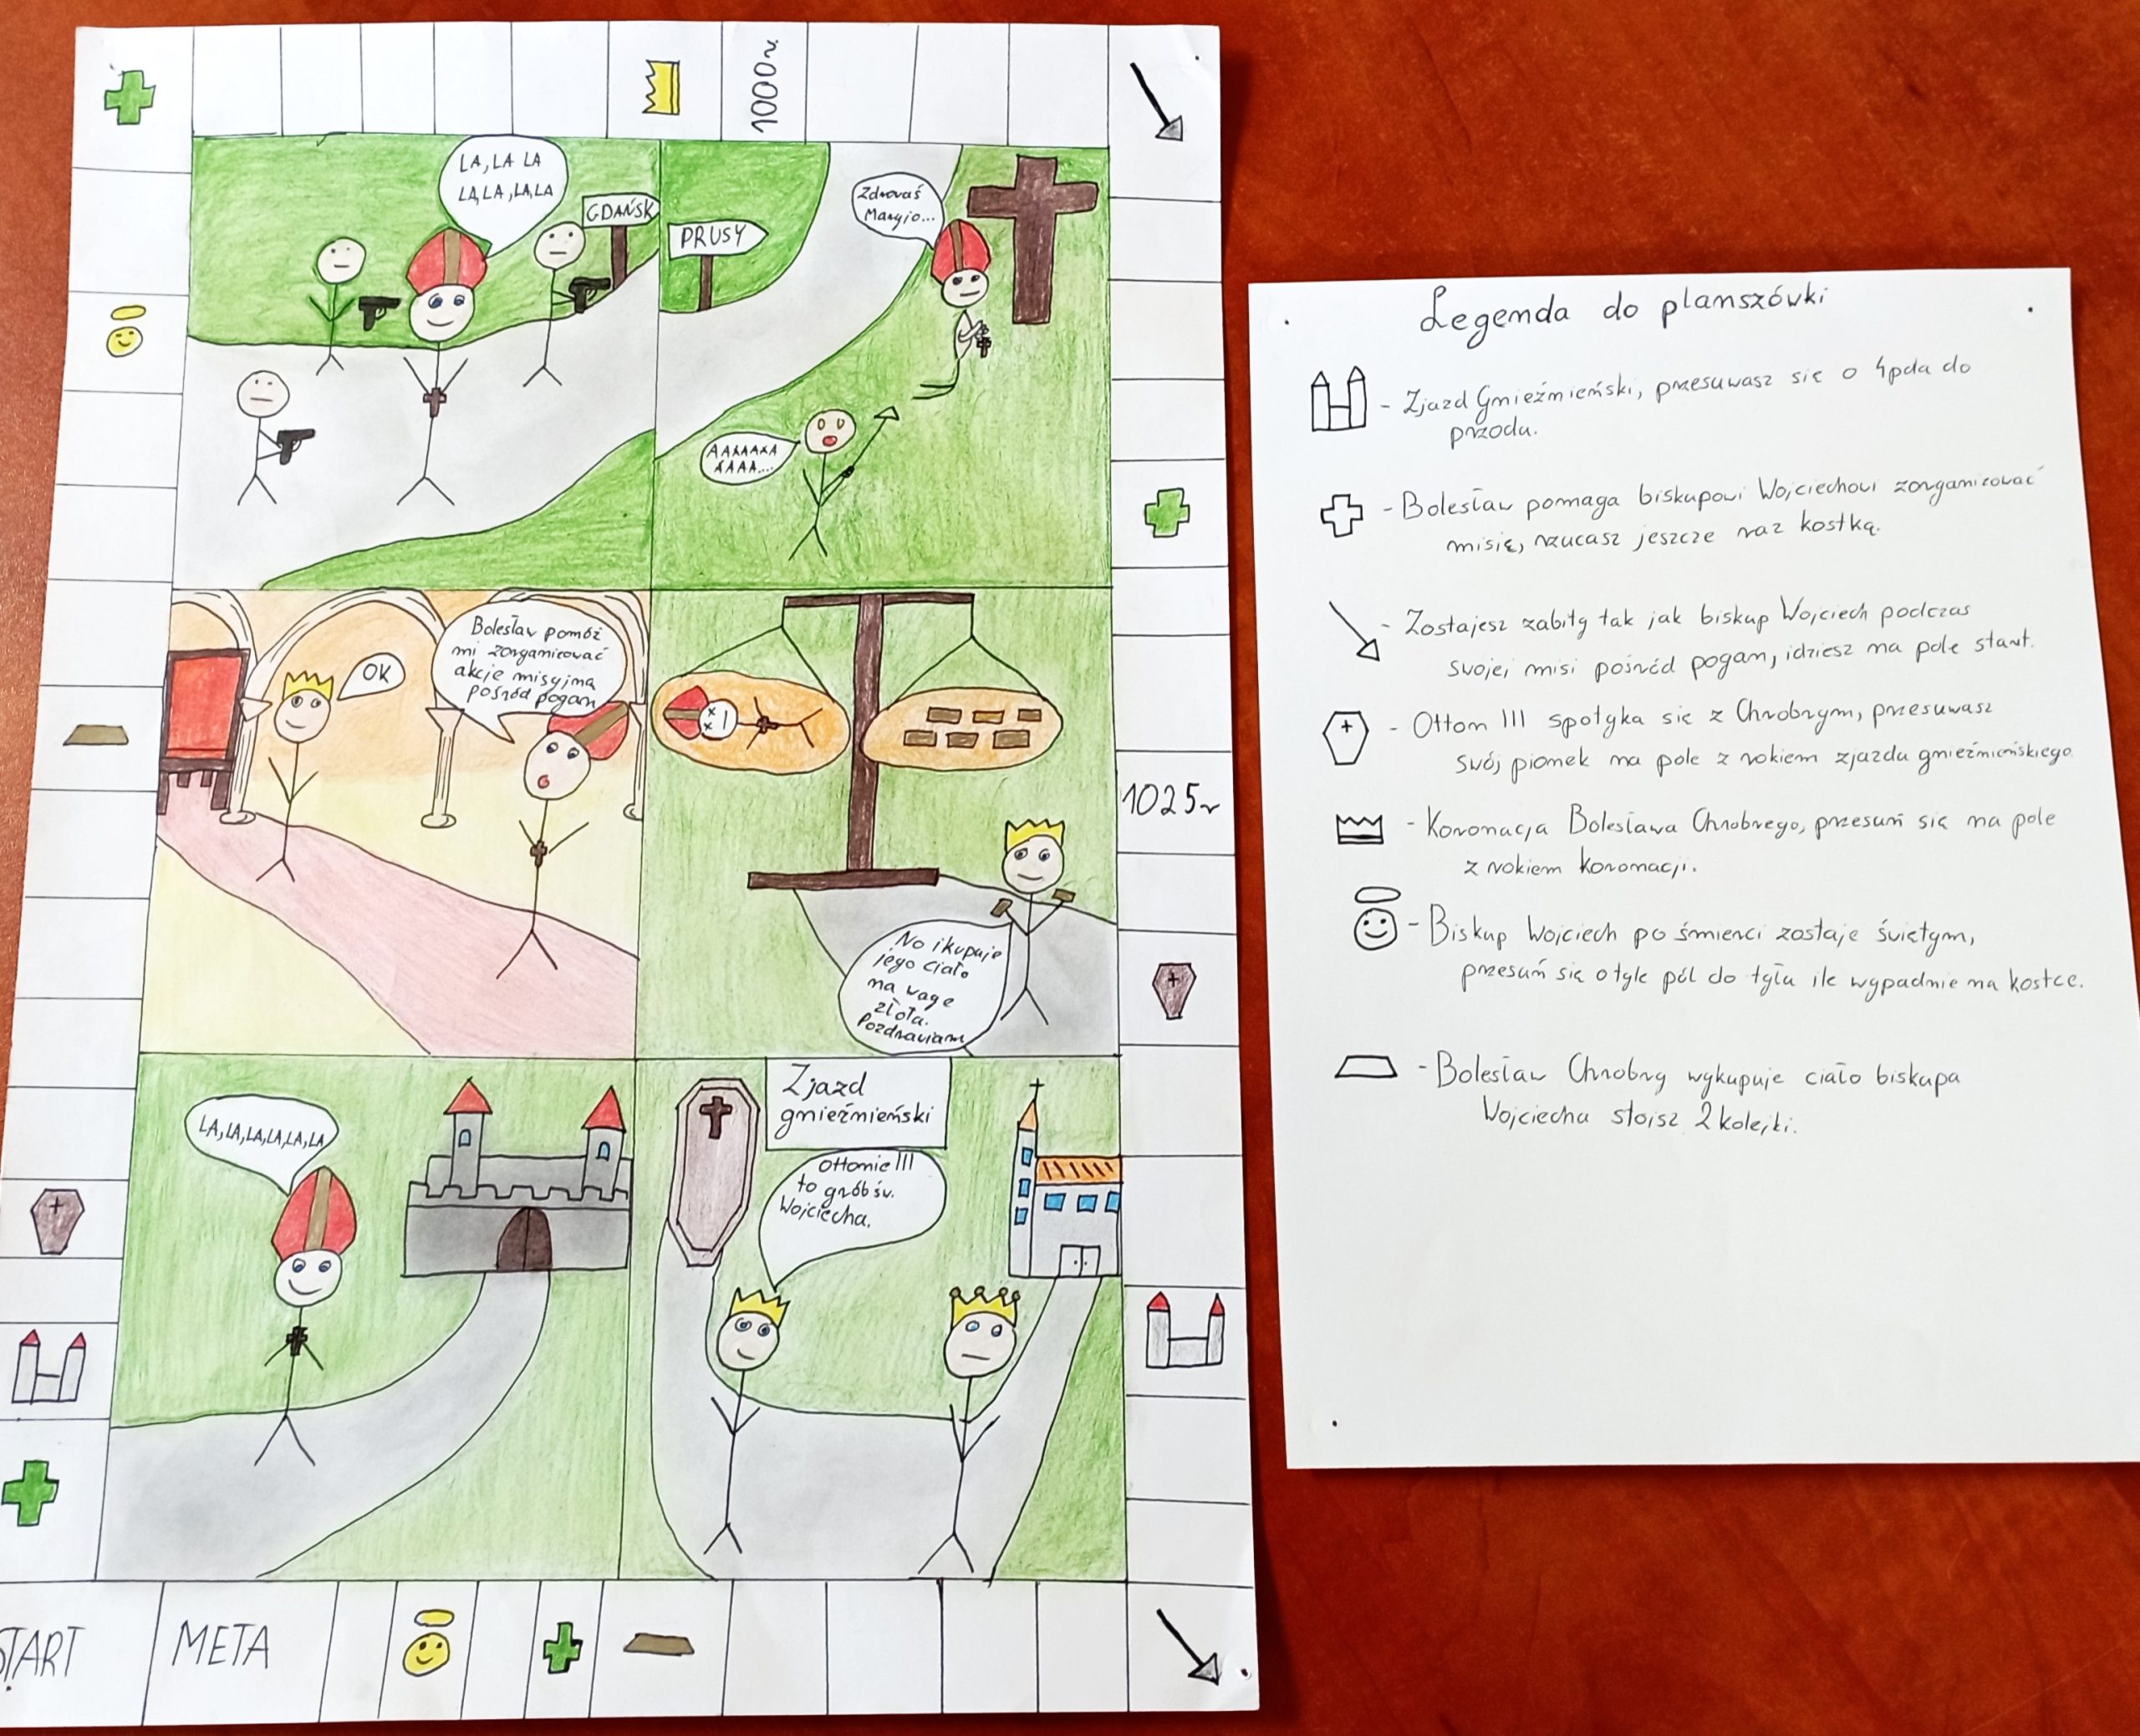 1000r.
LA, LA LA
LA, LA, LA, LA
GDAŃSK
PRUSY
Zdrowaś
Maryjo...
AAAAAAA
AAAA....
Bolesław pomóż
mi zorganizować
akcje misyjną
pośród pogan
OK
No i kupuje
jego ciało
na wage
złota.
Pozdrawiam
1025r
LA, LA, LA, LA, LA, LA
Zjazd
gnieźnieński
Ottonie III
to grób św.
Wojciecha.
START
META
Legenda do planszówki
- Zjazd Gnieźnieński, przesuwasz się o 4 pola do
przodu.
- Bolesław pomaga biskupowi Wojciechowi zorganizować
misię, rzucasz jeszcze raz kostką.
- Zostajesz zabity tak jak biskup Wojciech podczas
swojej misi pośród pogan, idziesz na pole start.
- Otton III spotyka się z Chrobrym, przesuwasz
swój pionek na pole z rokiem zjazdu gnieźnieńskiego
- Koronacja Bolesława Chrobrego, przesuń się na pole
z rokiem koronacji.
- Biskup Wojciech po śmierci zostaje świętym,
przesuń się o tyle pól do tyłu ile wypadnie na kostce.
- Bolesław Chrobry wykupuje ciało biskupa
Wojciecha stoisz 2 kolejki.